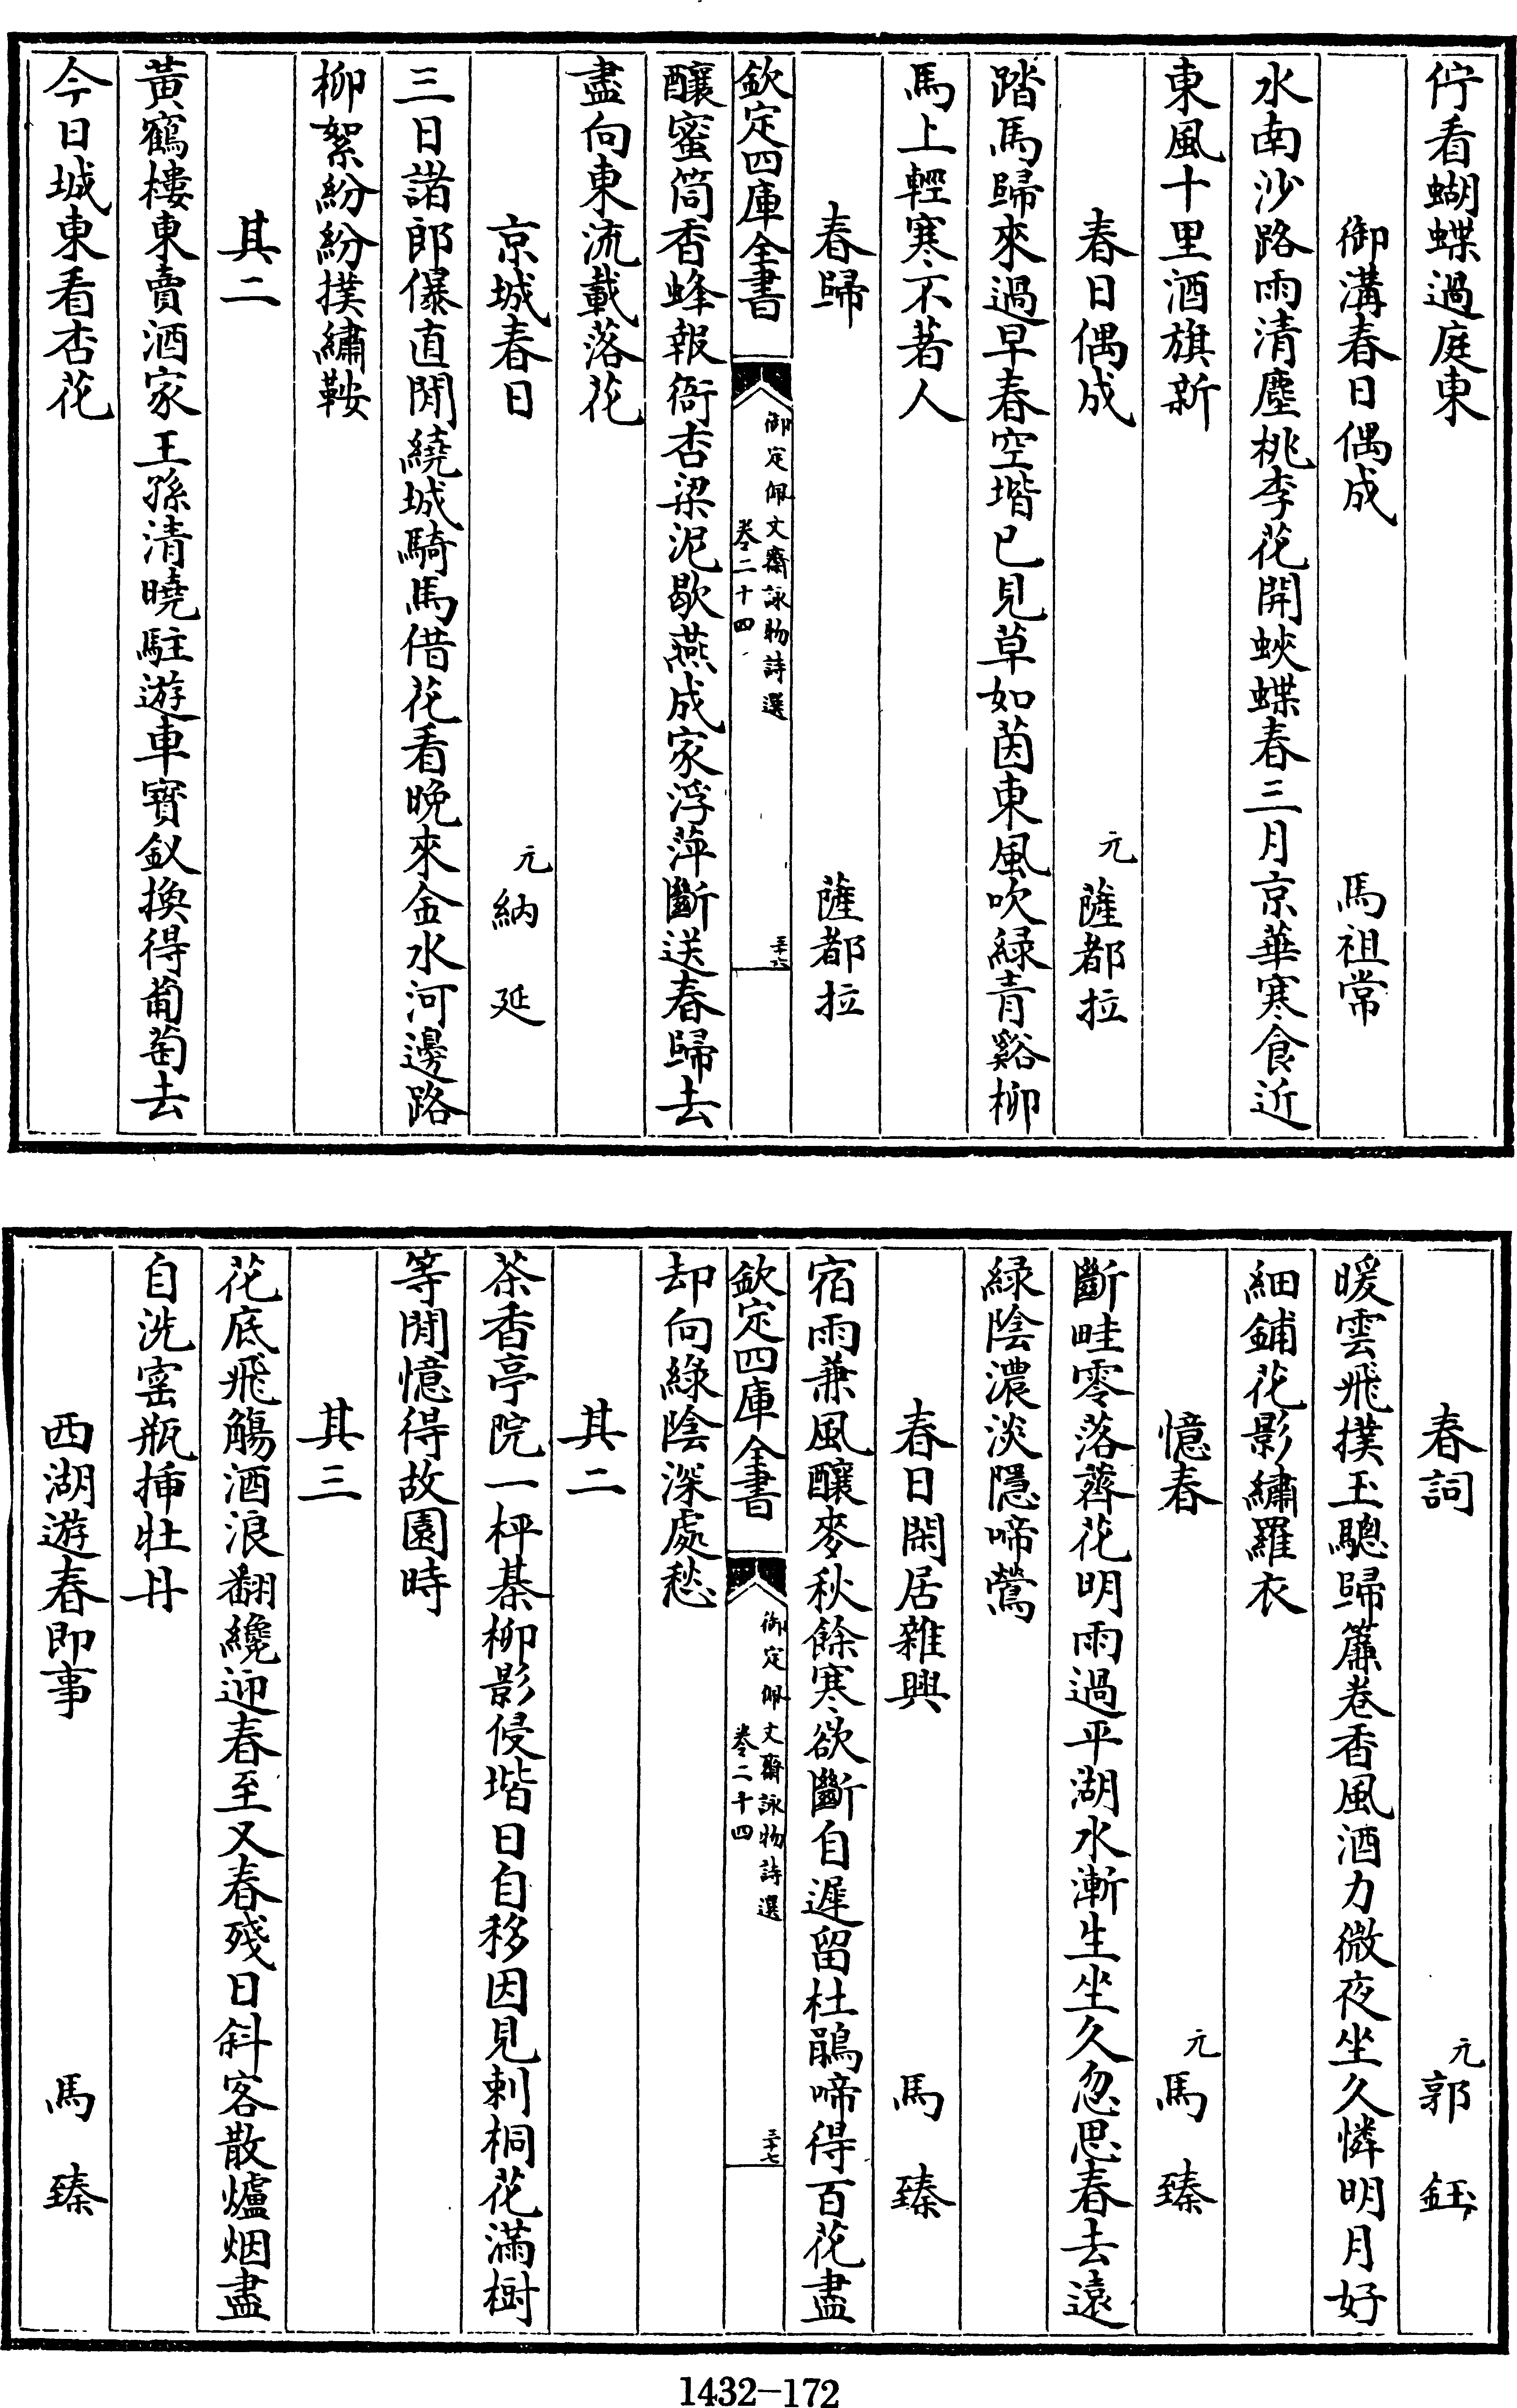 佇看蝴蝶過庭東
御溝春日偶成 馬祖常
水南沙路雨清塵桃李花開蛺蝶春三月京華寒食近
東風十里酒旗新
春日偶成 元 薩都拉
踏馬歸來過早春空堦已見草如茵東風吹綠青谿柳
馬上輕寒不著人
春歸 薩都拉
欽定四庫全書 御定佩文齋詠物詩選 卷二十四 三十六
釀蜜筒香蜂報衙杏梁泥歇燕成家浮萍斷送春歸去
盡向東流載落花
京城春日 元 納延
三日諸郎儤直閒繞城騎馬借花看晚來金水河邊路
柳絮紛紛撲繡鞍
其二
黃鶴樓東賣酒家王孫清曉駐遊車寶釵換得葡萄去
今日城東看杏花
春詞 元 郭鈺
暖雲飛撲玉驄歸簾卷香風酒力微夜坐久憐明月好
細鋪花影繡羅衣
憶春 元 馬臻
斷畦零落薺花明雨過平湖水漸生坐久忽思春去遠
綠陰濃淡隱啼鶯
春日閑居雜興 馬臻
宿雨兼風釀麥秋餘寒欲斷自遲留杜鵑啼得百花盡
欽定四庫全書 御定佩文齋詠物詩選 卷二十四 三十七
却向綠陰深處愁
其二
茶香亭院一枰棊柳影侵堦日自移因見刺桐花滿樹
等閒憶得故園時
其三
花底飛觴酒浪翻纔迎春至又春殘日斜客散爐烟盡
自洗窰瓶揷牡丹
西湖遊春即事 馬臻
1432-172